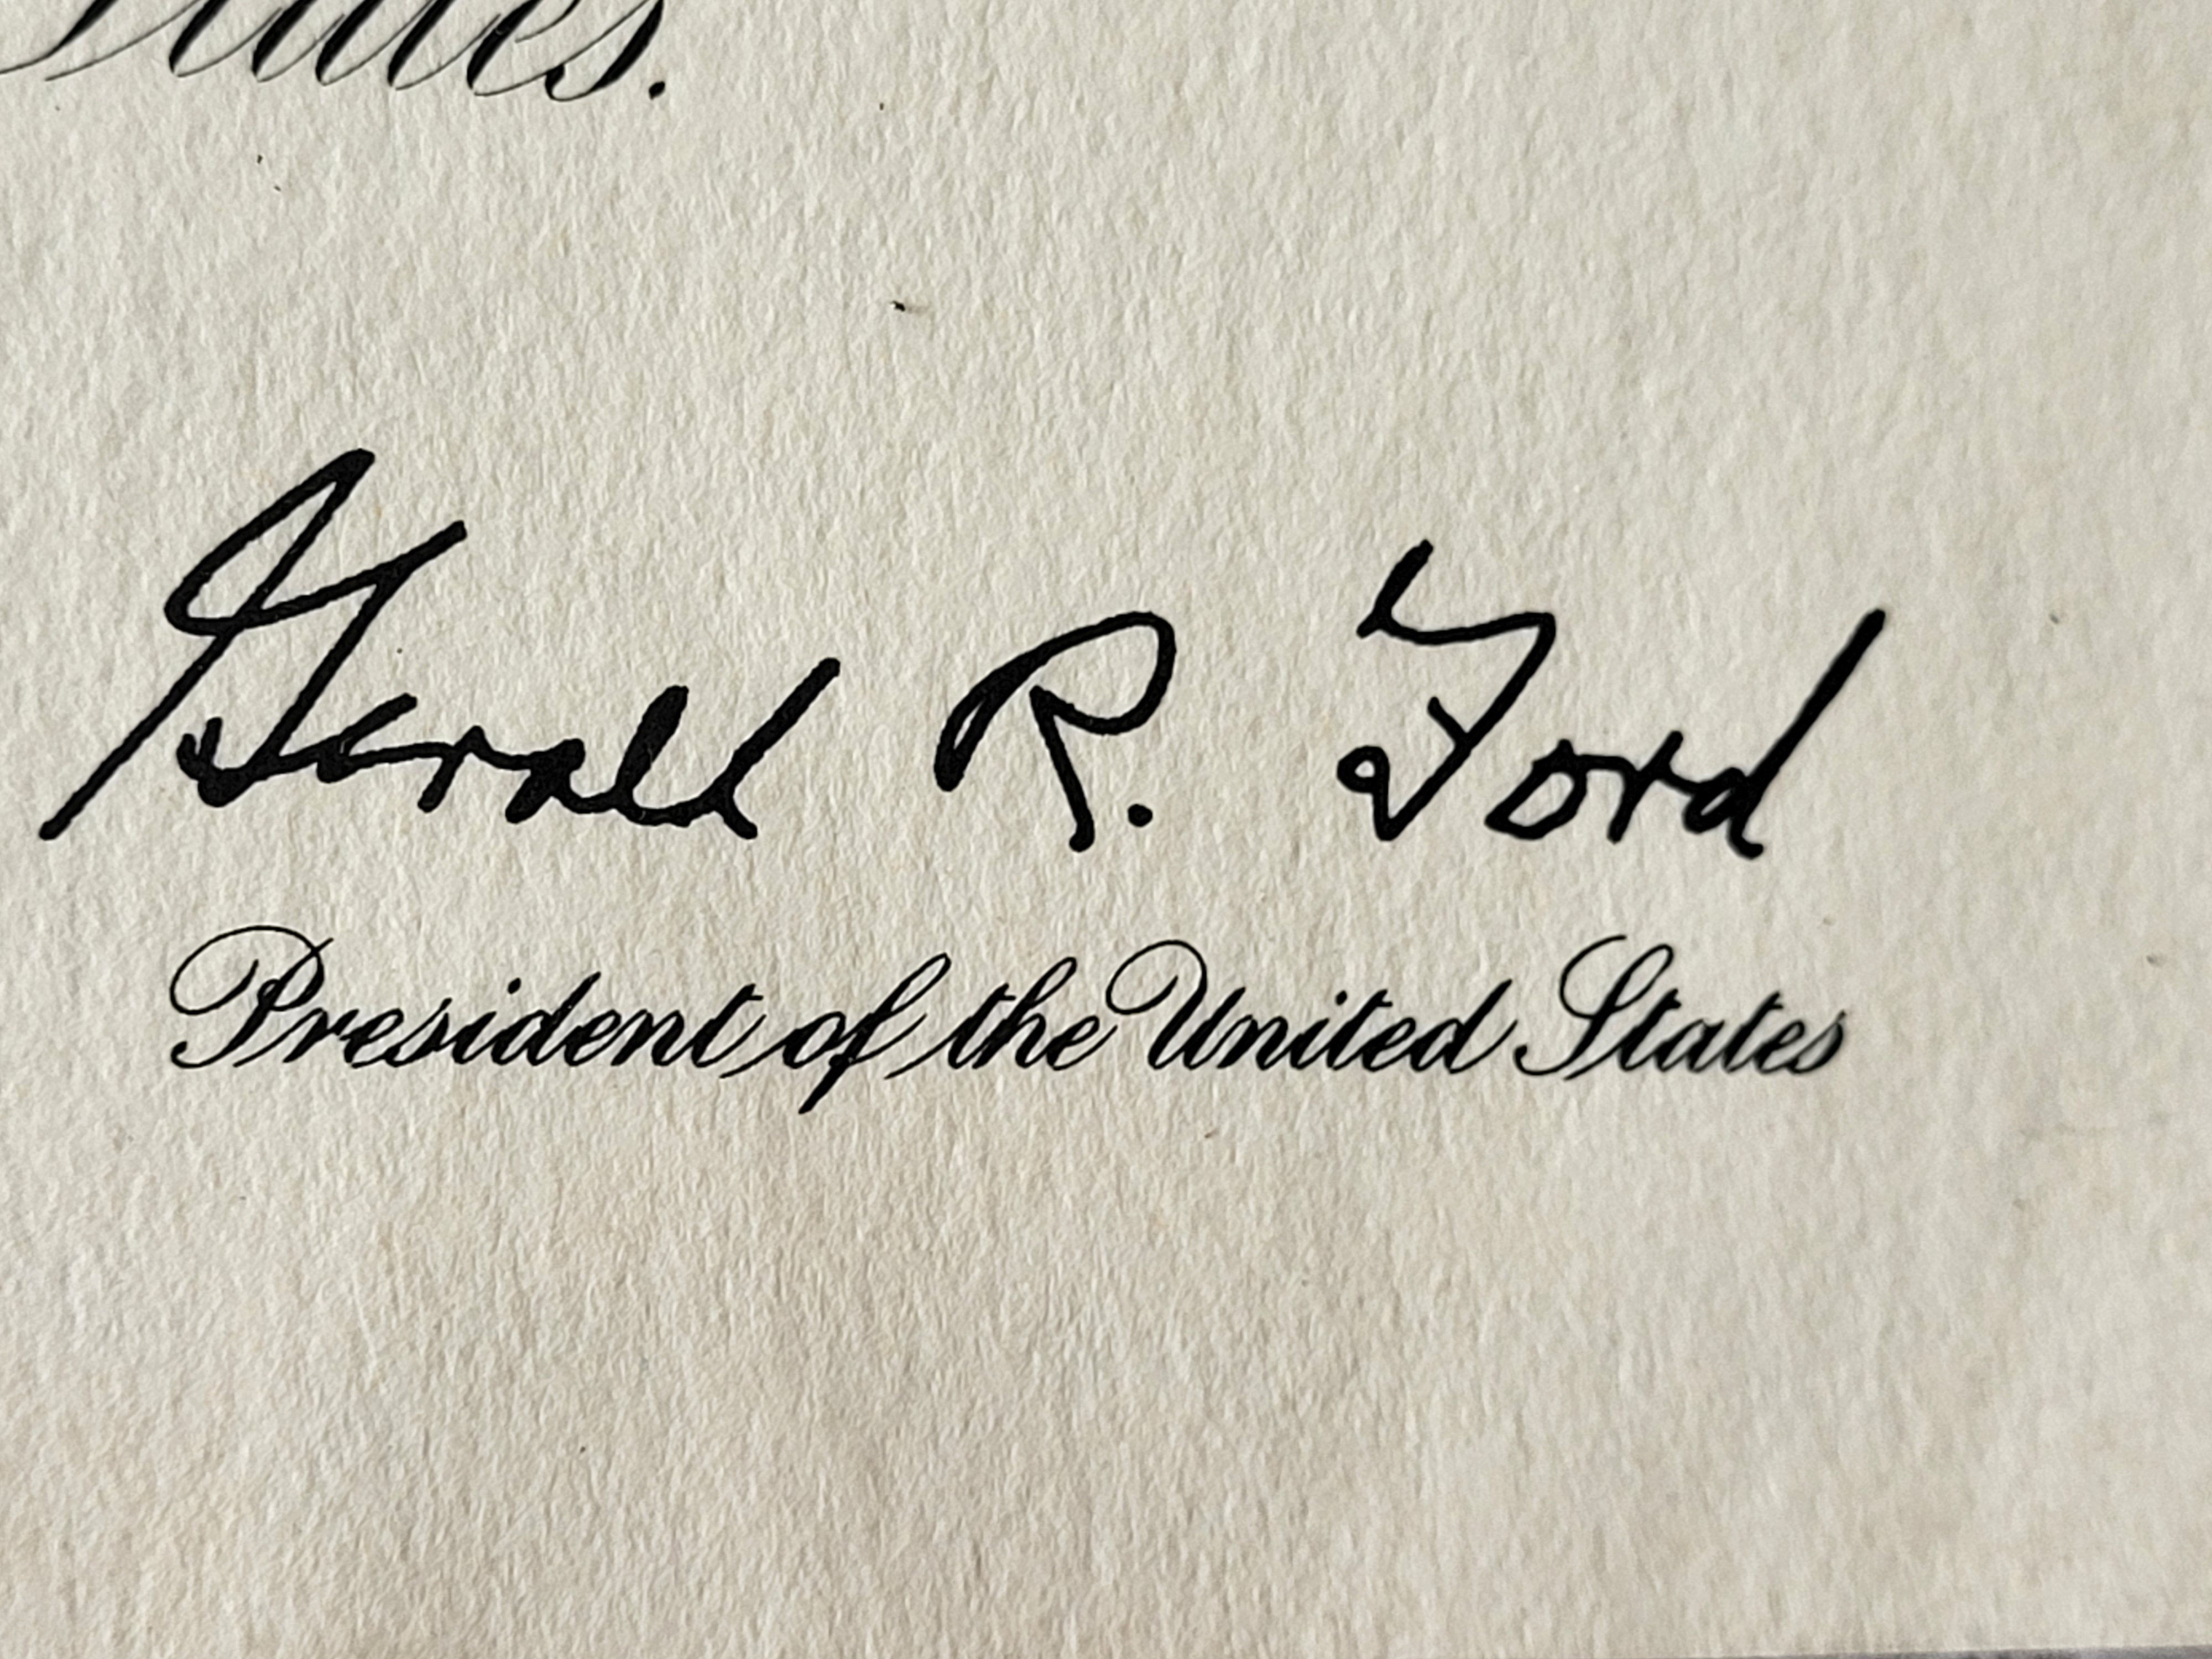 States.
Gerald R. Ford
President of the United States